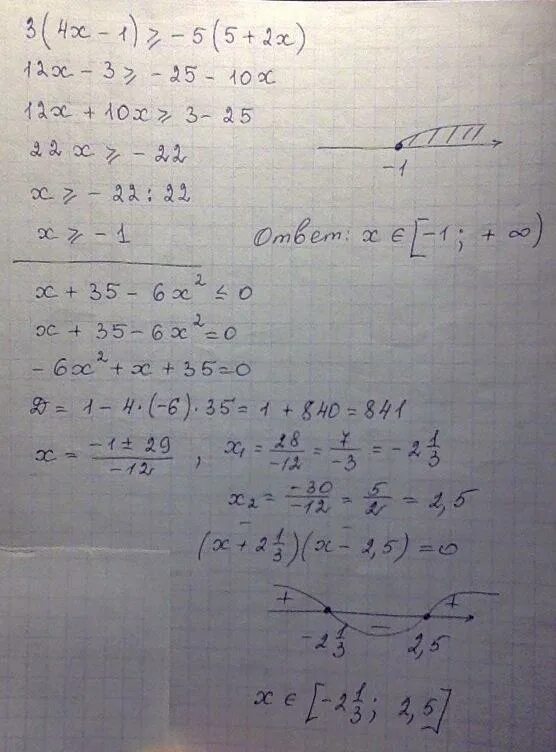 3(4x - 1) ⩾ -5(5 + 2x)
12x - 3 ⩾ -25 - 10x
12x + 10x ⩾ 3 - 25
22x ⩾ -22
-1
x ⩾ -22 : 22
x ⩾ -1
Ответ: x ∈ [-1; +∞)
x + 35 - 6x² ≤ 0
x + 35 - 6x² = 0
-6x² + x + 35 = 0
D = 1 - 4·(-6)·35 = 1 + 840 = 841
x = (-1 ± 29)/(-12) , x₁ = 28/(-12) = 7/(-3) = -2 1/3
x₂ = (-30)/(-12) = 5/2 = 2,5
(x + 2 1/3)(x - 2,5) = 0
+ - +
-2 1/3 2,5
x ∈ [-2 1/3; 2,5]